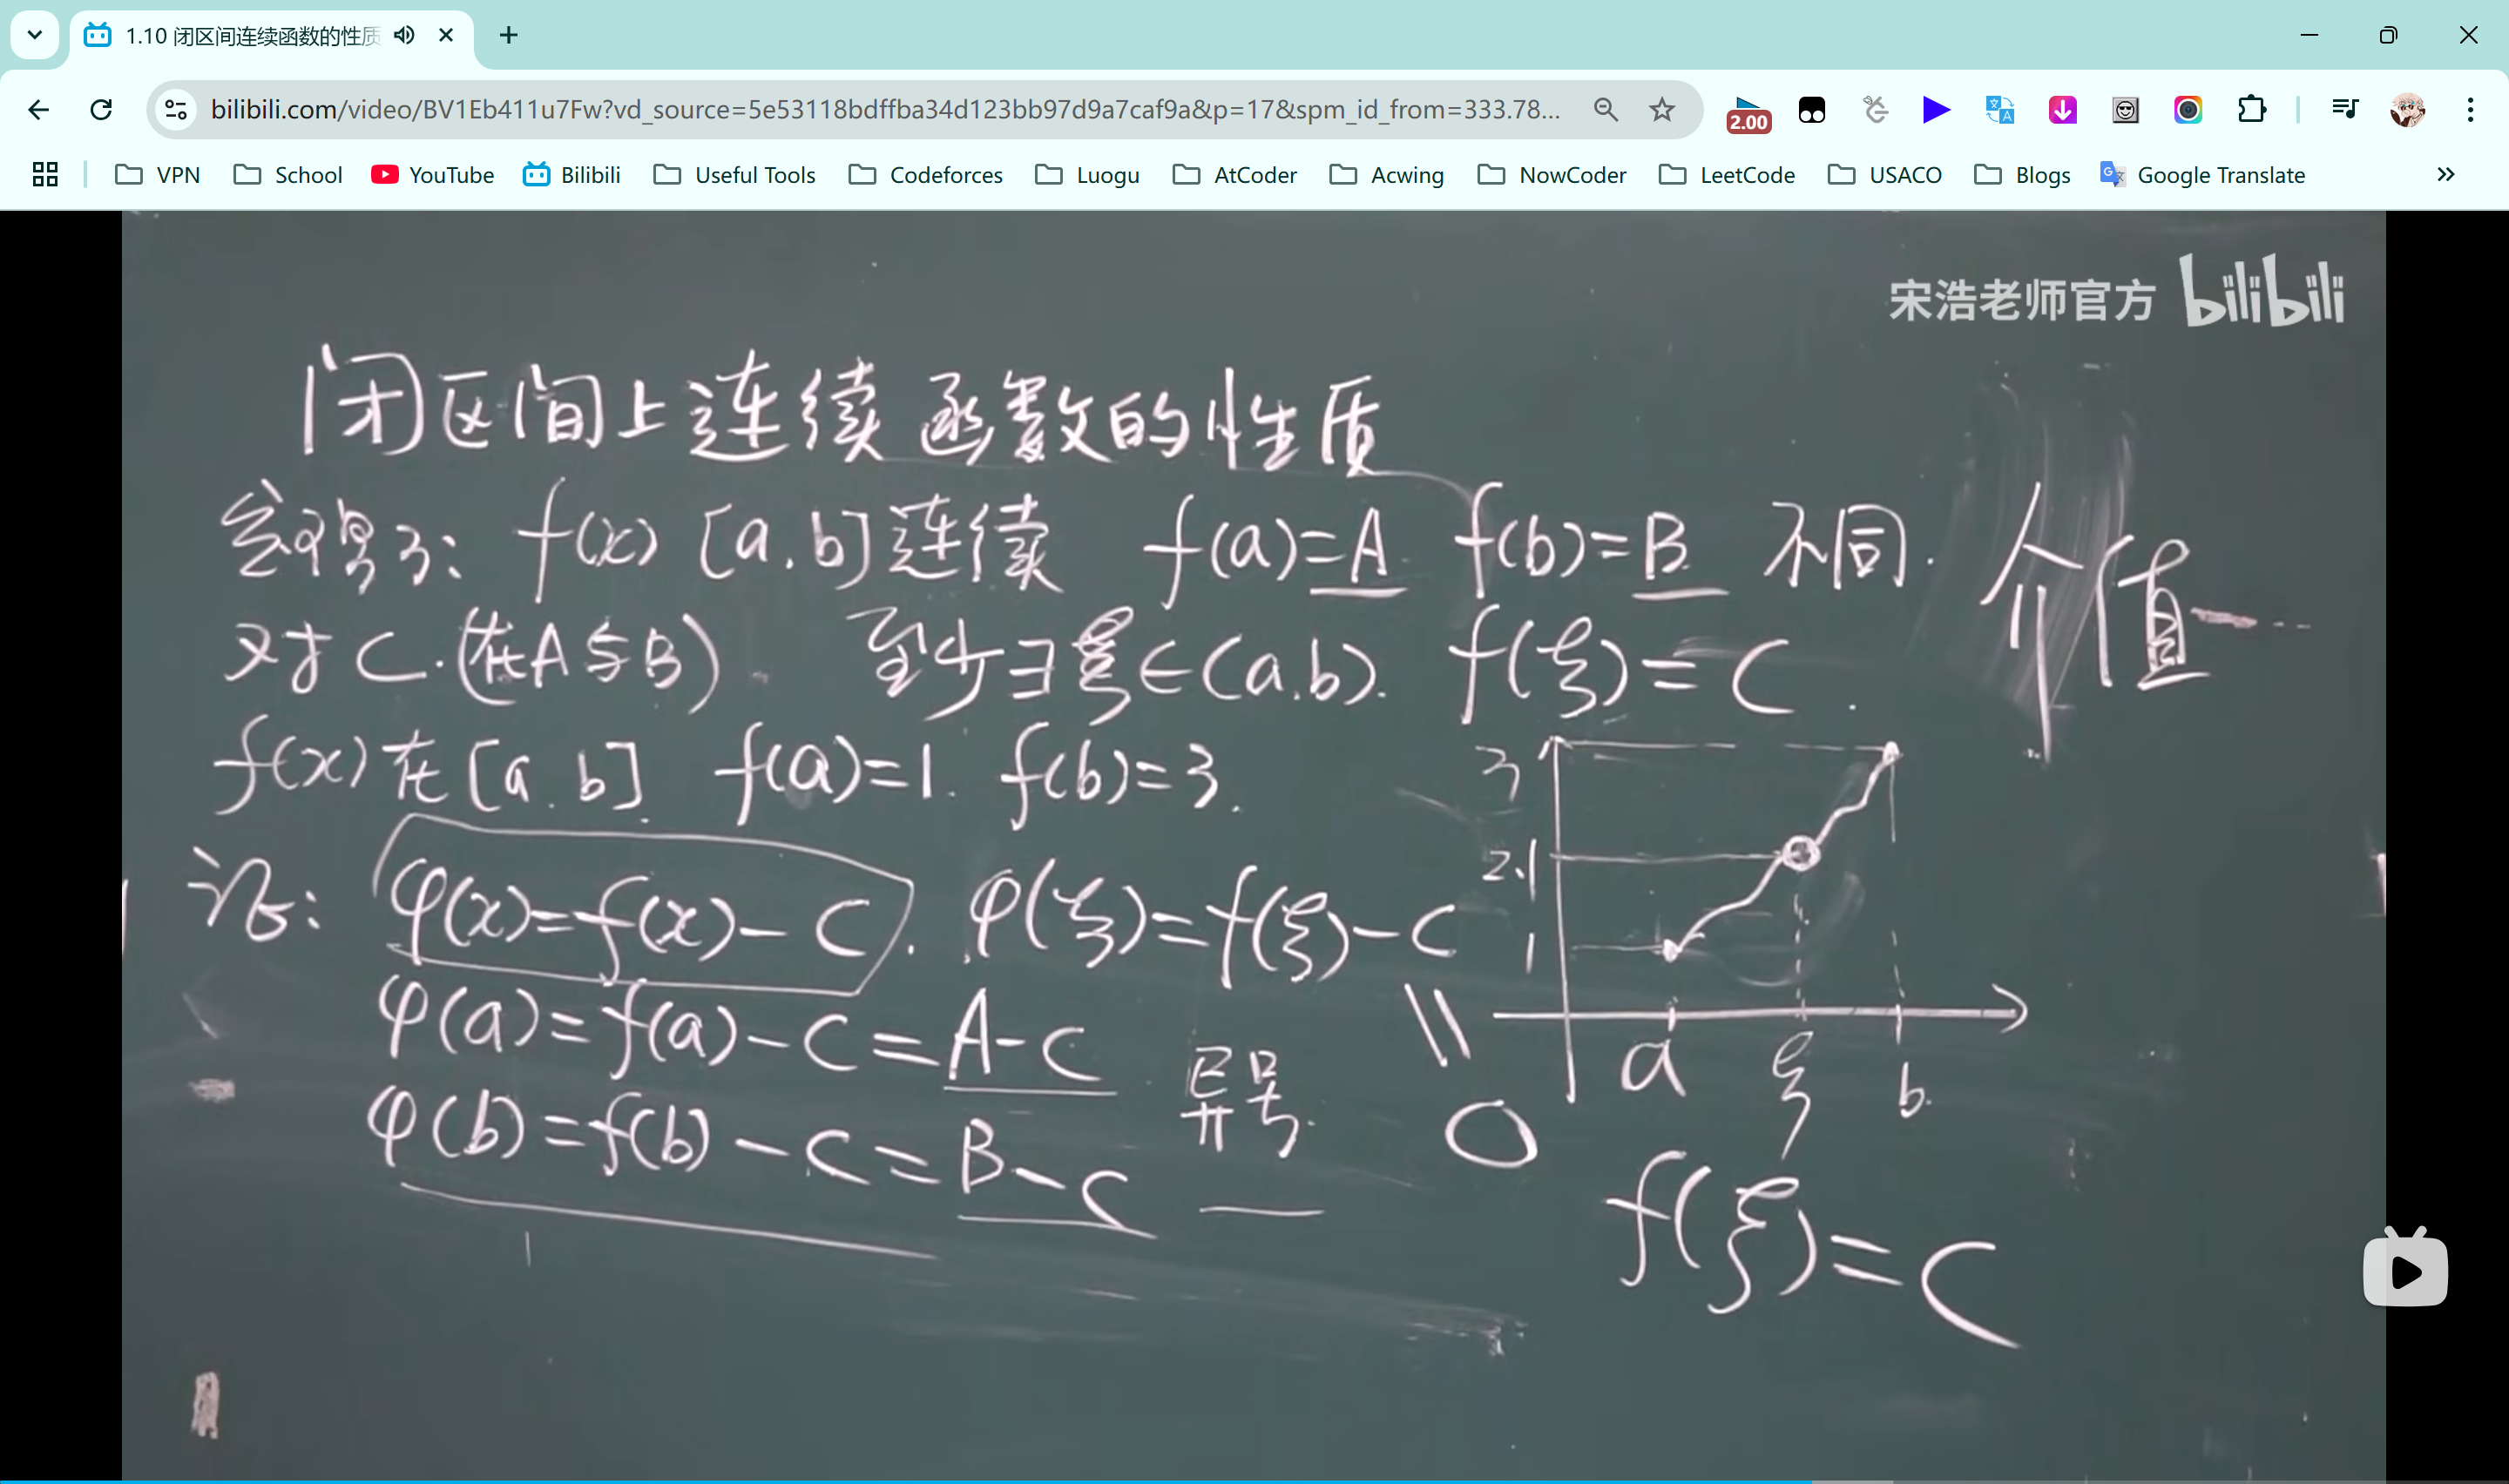 1.10 闭区间连续函数的性质
bilibili.com/video/BV1Eb411u7Fw?vd_source=5e53118bdffba34d123bb97d9a7caf9a&p=17&spm_id_from=333.78...
2.00
VPN School YouTube Bilibili Useful Tools Codeforces Luogu AtCoder Acwing NowCoder LeetCode USACO Blogs Google Translate
宋浩老师官方 bilibili
闭区间上连续函数的性质
f(x) [a,b]连续 f(a)=A f(b)=B 不同. 介值
对C.(在A与B) 至少∃ξ∈(a.b). f(ξ)=C.
f(x)在[a.b] f(a)=1. f(b)=3.
证: φ(x)=f(x)-C. φ(ξ)=f(ξ)-C
φ(a)=f(a)-C=A-C 异号 || 0
φ(b)=f(b)-C=B-C
3
2.1
1
a ξ b.
f(ξ)=C